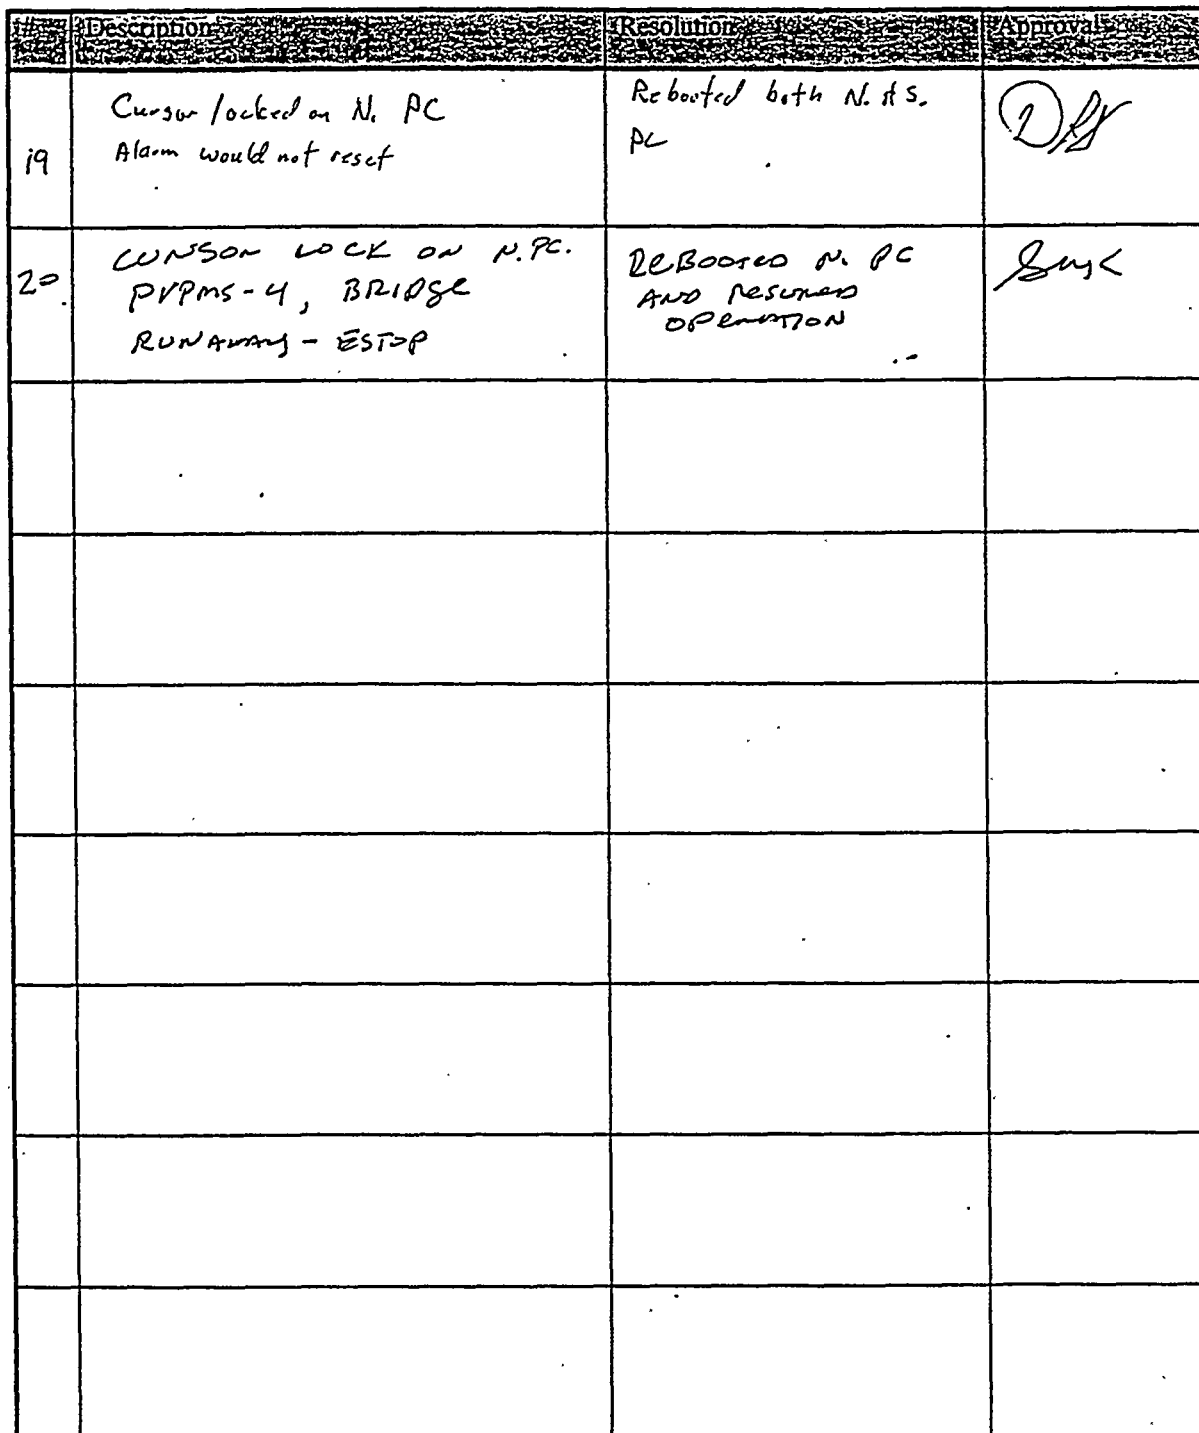 # Description Resolution Approval
19
Cursor locked on N. PC
Alarm would not reset
Rebooted both N. & S.
PC
20
CURSOR LOCK ON N.PC.
PVPMS-4, BRIDGE
RUNAWAY - ESTOP
REBOOTED N. PC
AND RESUMED
OPERATION